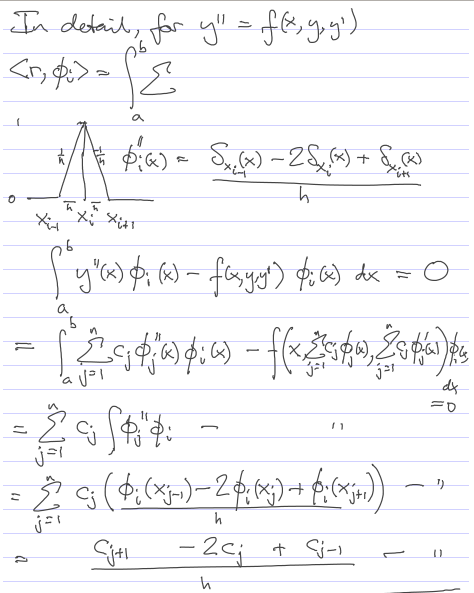 In detail, for y'' = f(x, y, y')
<r, φᵢ> = ∫ₐᵇ Σ
1
1/h -1/h φᵢ''(x) = (δ_{xᵢ₋₁}(x) - 2δ_{xᵢ}(x) + δ_{xᵢ₊₁}(x)) / h
0
h h
xᵢ₋₁ xᵢ xᵢ₊₁
∫ₐᵇ y''(x) φᵢ(x) - f(x, y, y') φᵢ(x) dx = 0
= ∫ₐᵇ Σⱼ₌₁ⁿ cⱼ φⱼ''(x) φᵢ(x) - f(x, Σⱼ₌₁ⁿ cⱼ φⱼ(x), Σⱼ₌₁ⁿ cⱼ φⱼ'(x)) φᵢ(x) dx = 0
= Σⱼ₌₁ⁿ cⱼ ∫ φⱼ'' φᵢ - "
= Σⱼ₌₁ⁿ cⱼ (φᵢ(xⱼ₋₁) - 2φᵢ(xⱼ) + φᵢ(xⱼ₊₁)) / h - "
= (cⱼ₊₁ - 2cⱼ + cⱼ₋₁) / h - "